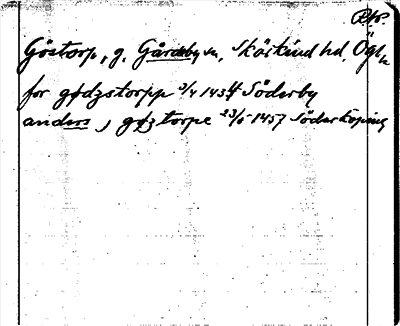 Rep.
Göstorp, g. Gårdeby sn, Skärkind hd, Ögl.
for gødzstorpp 3/4 1434 Söderby
anders j gøz torpe 23/5 1457 Söderköping